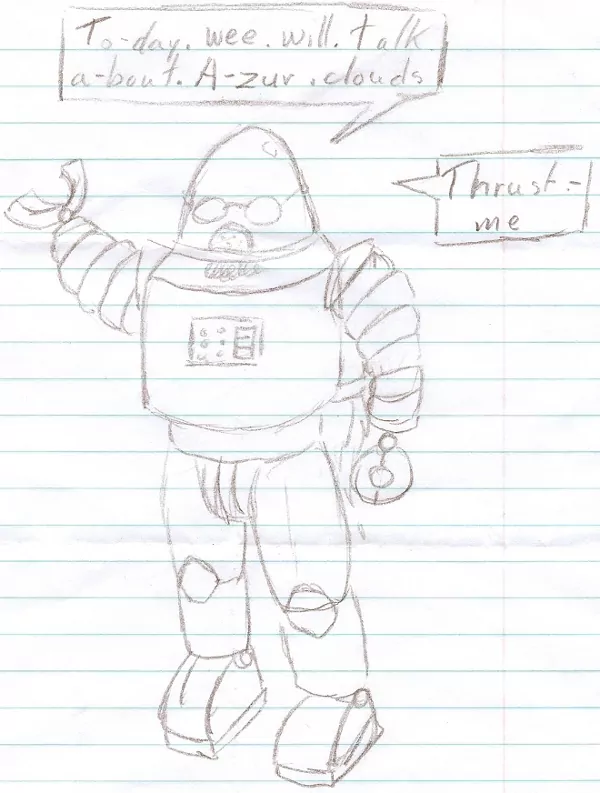 To-day. wee. will. talk
a-bout. A-zur. clouds
Thrust.-
me